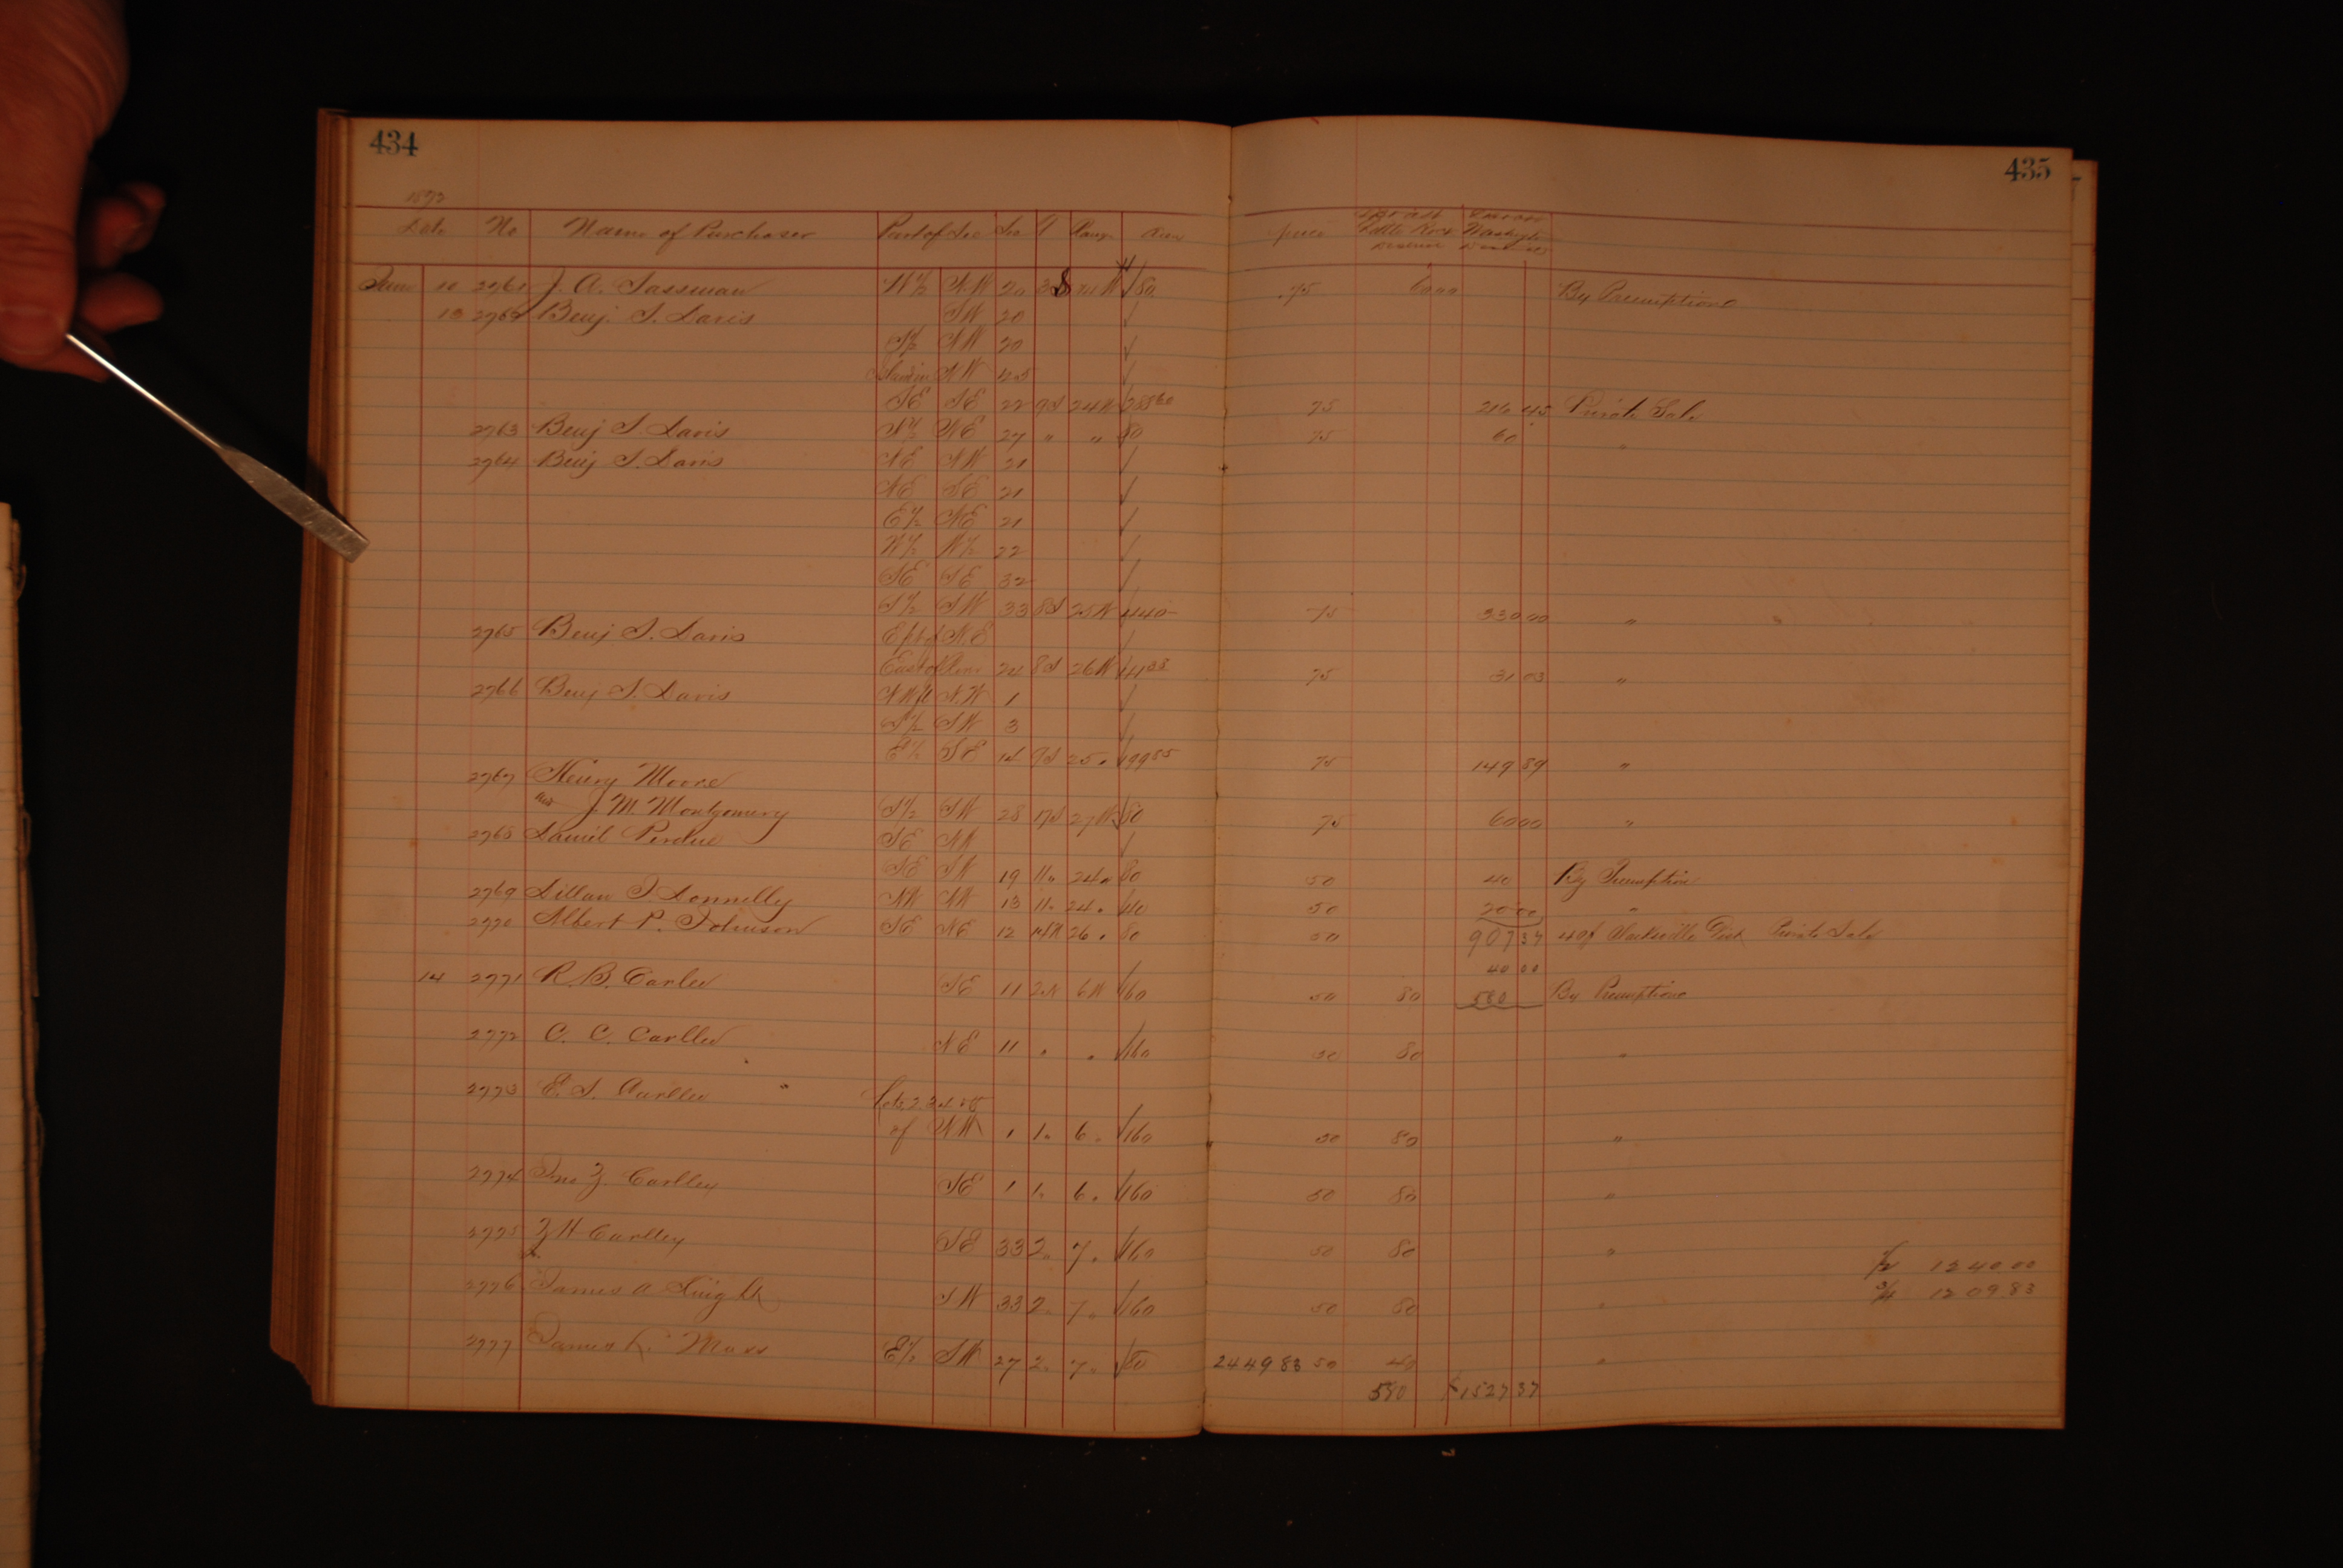 434
435
1872
Date No Name of Purchaser Part of Sec Sec T Range Area price Little Rock Washington
June 10 2761 J. A. Sassman W½ NW 20 3S W 80 .75 60 00 By Preemption
13 2762 Benj. S. Davis SW 20
S½ NW 20
NW
SE SE 22 9S 24W 288 60 75 216 45 Private Sale
2763 Benj S. Davis N½ NE 27 " " 80 75 60 "
2764 Benj S. Davis NE NW 21
NE SE 21
E½ NE 21
W½ W½ 22
SE SE 32
S½ SW 33 8S 25W 440 75 330 00 "
2765 Benj S. Davis E pt of NE
East of 24 8S 26W 41 38 75 31 03 "
2766 Benj S. Davis NW fl N.W 1
S½ SW 3
E½ SE 14 9S 25 " 199 85 75 149 89 "
2767 Henry Moore
and J. M. Montgomery S½ SW 28 17S 27W 80 75 60 00 "
2768 Daniel Perdue SE NW
NE SW 19 11 " 24 " 80 50 40 By Preemption
2769 Dillan T. Donnelly NW NW 13 11 " 24 " 40 50 20 00 "
2770 Albert P. Johnson SE NE 12 26 " 80 50 907 37 Clarksville Dist Private Sale
40 00
14 2771 R. B. Carlee SE 11 2N 6W 160 50 80 580 By Preemption
2772 C. C. Carllee NE 11 " " 160 50 80 "
2773 E. S. Carllee Lots 2
of NW 1 1 " 6 " 160 50 80 "
2774 Jno Z. Carlley SE 1 1 " 6 " 160 50 80 "
2775 Z H Carlley SE 33 2 " 7 " 160 50 80 "
½ 1240.00
2776 James A Knight SW 33 2 " 7 " 160 50 80 "
¾ 1209.83
2777 James K. Moss E½ SW 27 2 " 7 " 80 2449 83 50 40 "
580 1527 37